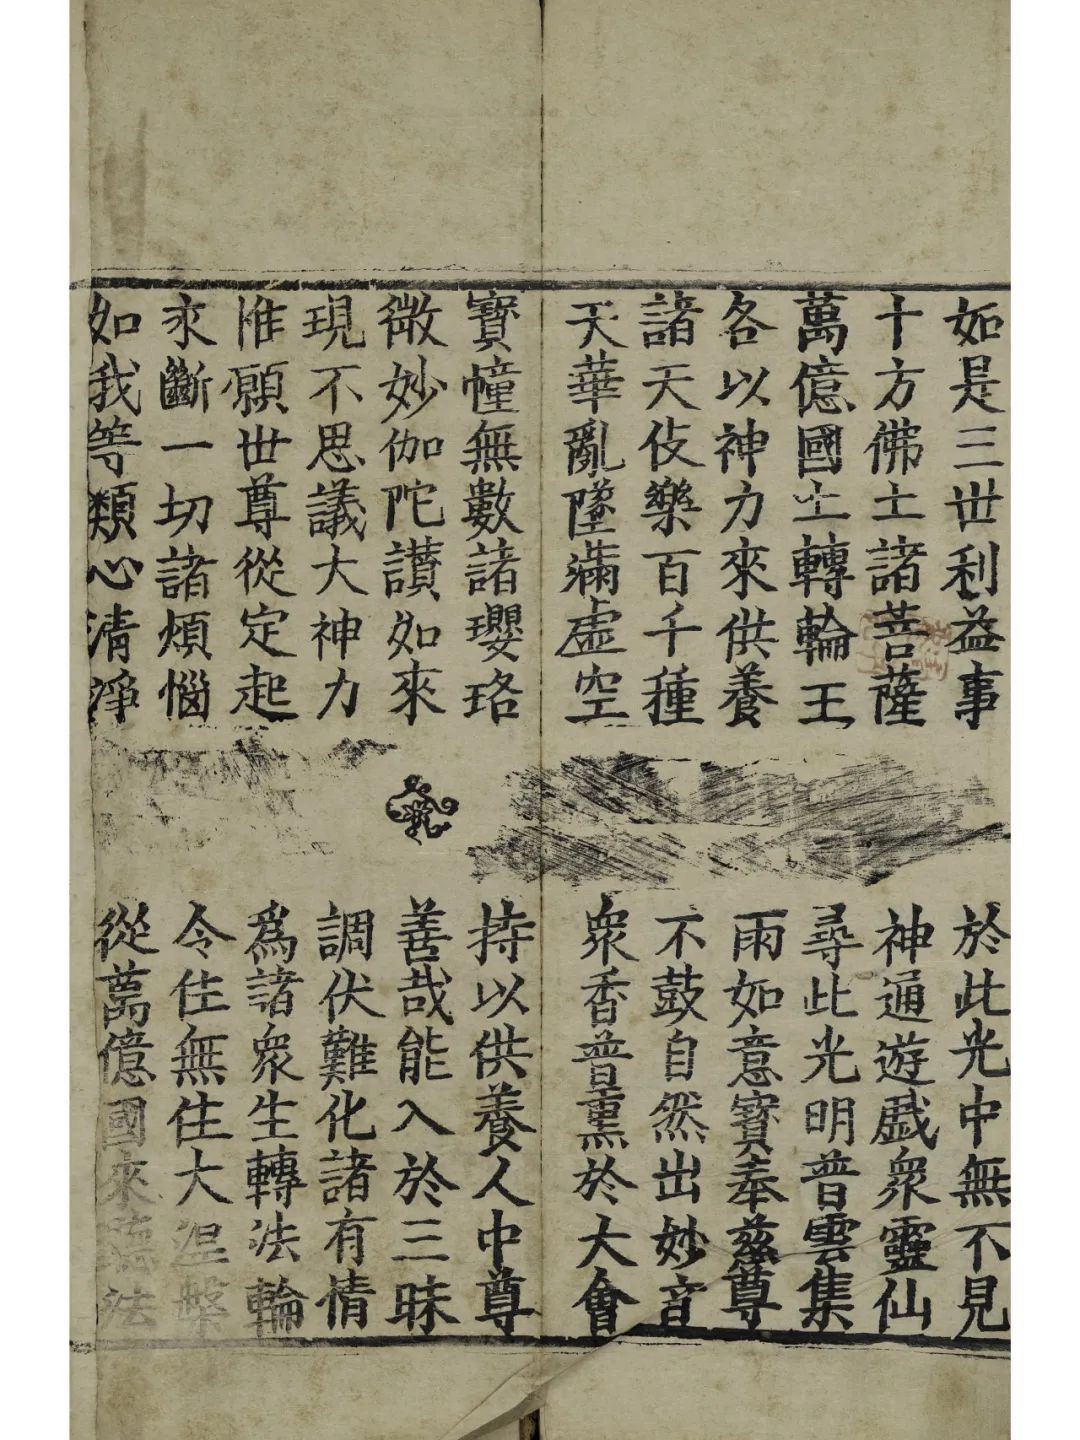 如是三世利益事
於此光中無不見
十方佛土諸菩薩
神通遊戲衆靈仙
萬億國土轉輪王
尋此光明普雲集
各以神力來供養
雨如意寶奉慈尊
諸天伎樂百千種
不鼓自然出妙音
天華亂墜滿虛空
衆香普熏於大會
寶幢無數諸瓔珞
持以供養人中尊
微妙伽陀讃如來
善哉能入於三昧
現不思議大神力
調伏難化諸有情
惟願世尊從定起
爲諸衆生轉法輪
求斷一切諸煩惱
令住無住大涅槃
如我等類心清淨
從萬億國來聽法